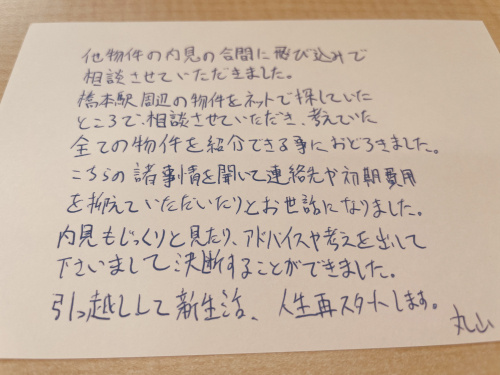 他物件の内見の合間に飛び込みで
相談させていただきました。
橋本駅周辺の物件をネットで探していた
ところで、相談させていただき、考えていた
全ての物件を紹介できる事におどろきました。
こちらの諸事情を聞いて連絡先や初期費用
を抑えていただいたりとお世話になりました。
内見もじっくりと見たり、アドバイスや考えを出して
下さいまして決断することができました。
引っ越しして新生活、人生再スタートします。
丸山